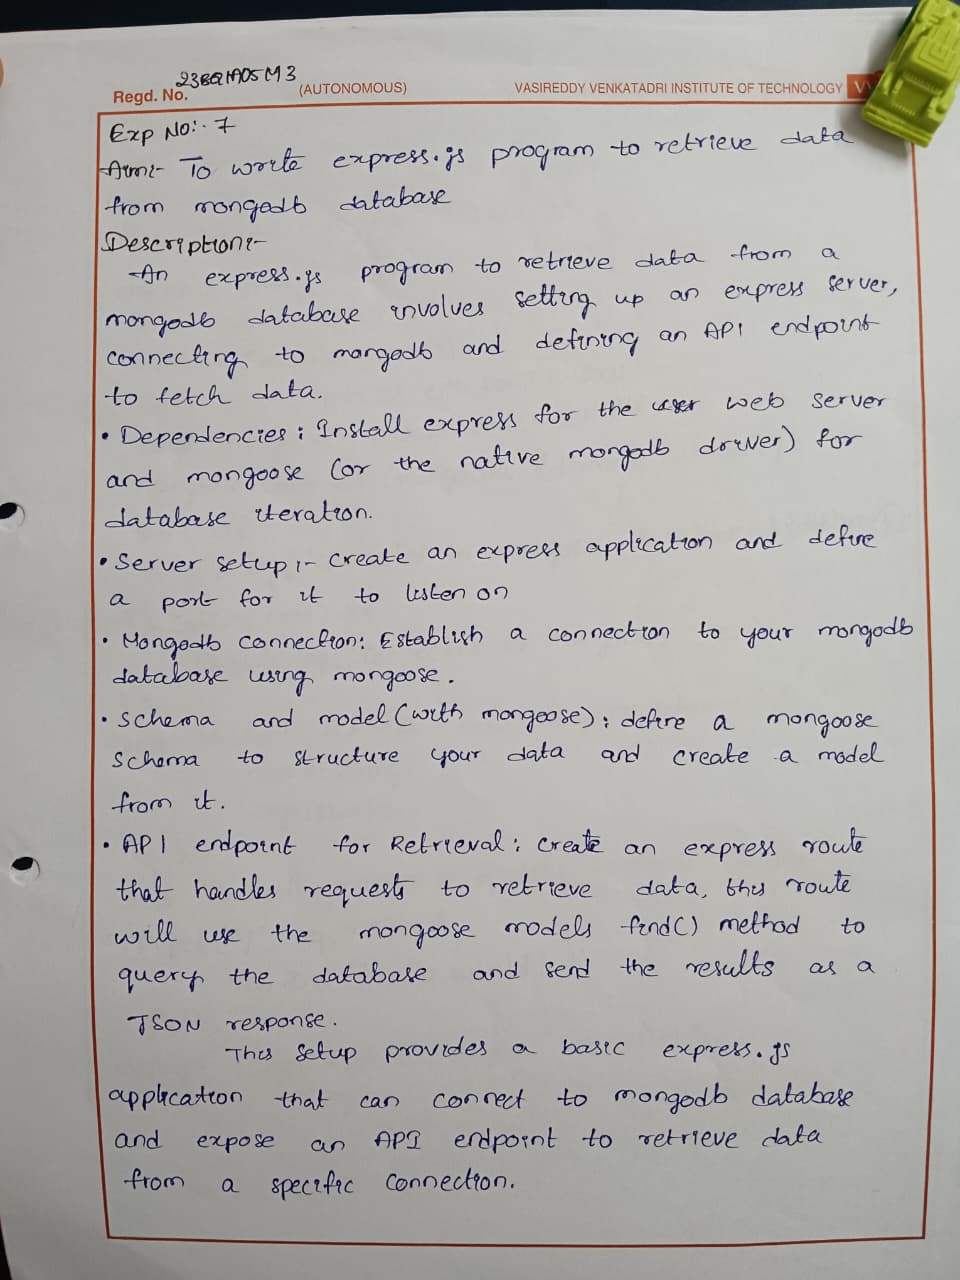 23BQ1A05M3
Regd. No. (AUTONOMOUS) VASIREDDY VENKATADRI INSTITUTE OF TECHNOLOGY
Exp No:- 7
Aim:- To write express.js program to retrieve data
from mongodb database
Description:-
An express.js program to retrieve data from a
mongodb database involves setting up an express server,
connecting to mongodb and defining an API endpoint
to fetch data.
• Dependencies : Install express for the user web server
and mongoose (or the native mongodb driver) for
database iteration.
• Server setup :- create an express application and define
a port for it to listen on
• Mongodb connection: Establish a connection to your mongodb
database using mongoose.
• schema and model (with mongoose) : define a mongoose
schema to structure your data and create a model
from it.
• API endpoint for Retrieval : create an express route
that handles requests to retrieve data, this route
will use the mongoose models find() method to
query the database and send the results as a
JSON response.
This setup provides a basic express.js
application that can connect to mongodb database
and expose an API endpoint to retrieve data
from a specific connection.